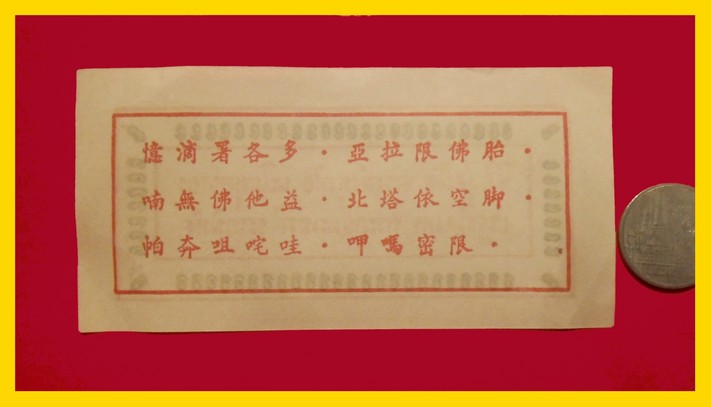 憶滴署各多・亞拉限佛胎・
喃無佛他益・北塔依空脚・
帕夯咀咤哇・呷嗎密限・